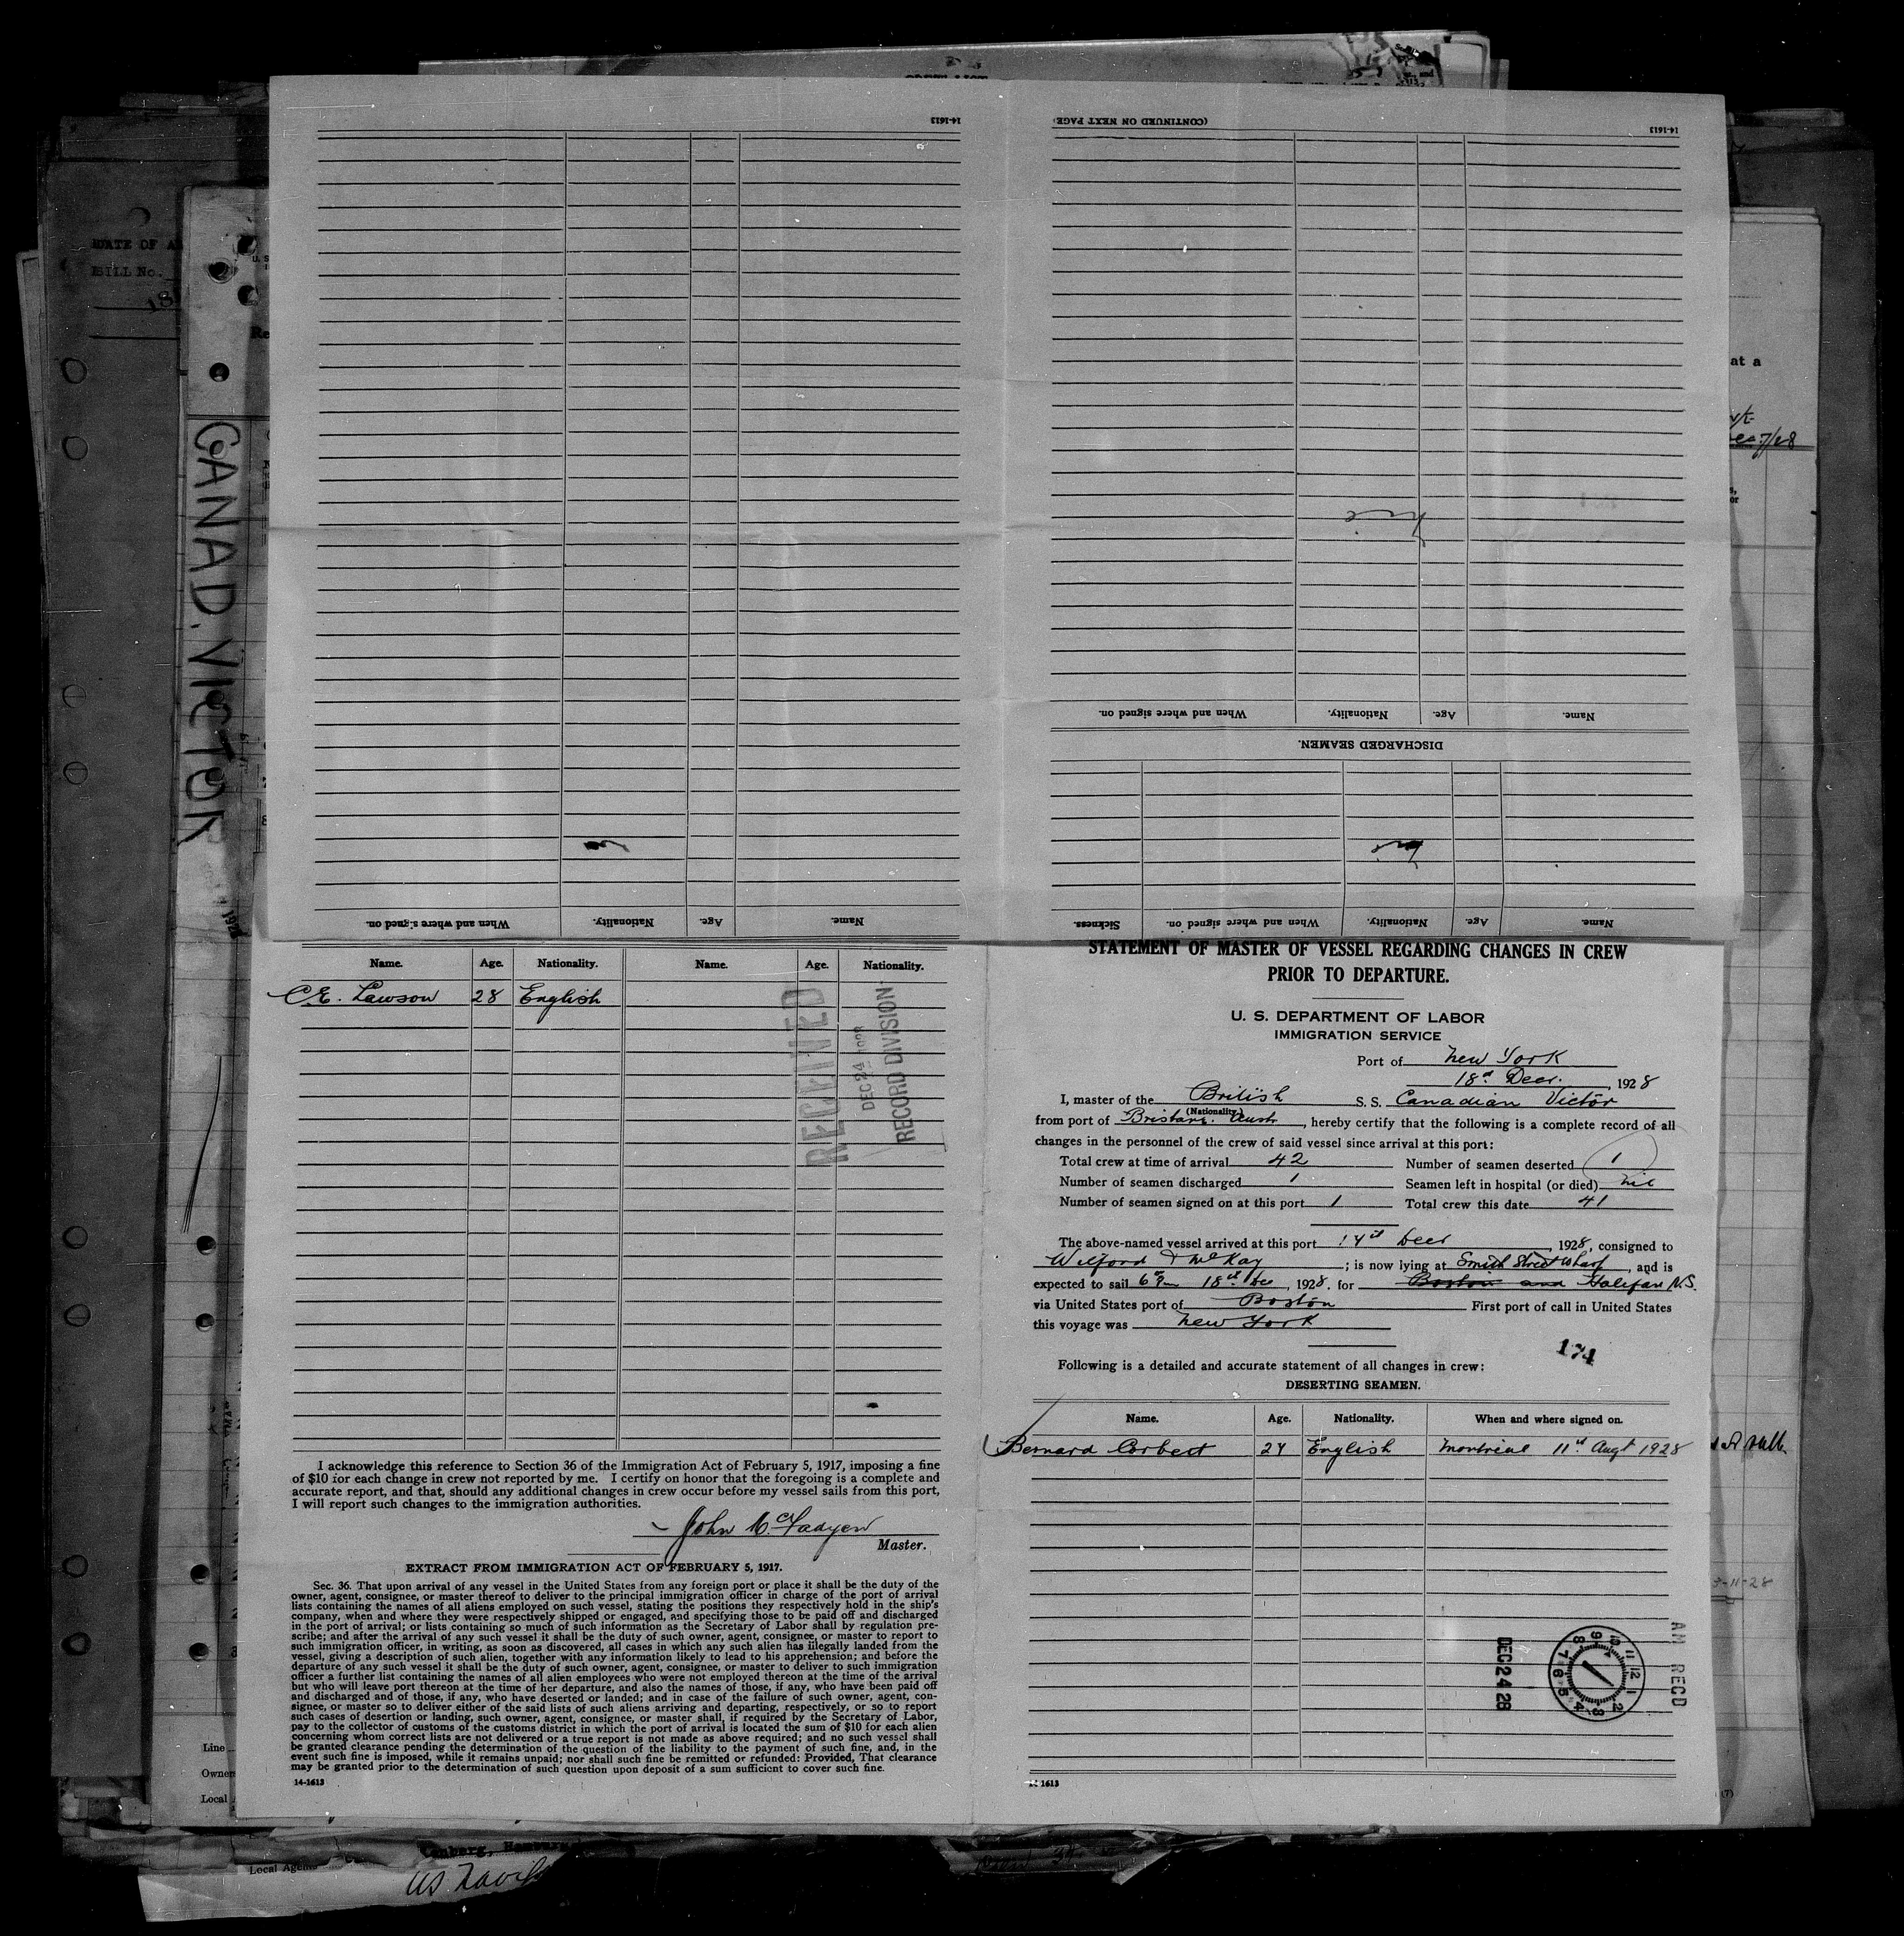 14-1613
(CONTINUED ON NEXT PAGE)
14-1613
nil
When and where signed on. Nationality. Age. Name.
DISCHARGED SEAMEN.
When and where signed on. Nationality. Age. Name.
Sickness. When and where signed on. Nationality. Age. Name.
DATE OF A
BILL No.
18
CANAD. VICTOR
at a
Name. Age. Nationality. Name. Age. Nationality.
C.E. Lawson 28 English
RECEIVED
DEC 24 1928
RECORD DIVISION
I acknowledge this reference to Section 36 of the Immigration Act of February 5, 1917, imposing a fine
of $10 for each change in crew not reported by me. I certify on honor that the foregoing is a complete and
accurate report, and that, should any additional changes in crew occur before my vessel sails from this port,
I will report such changes to the immigration authorities.
John McFadyen
Master.
EXTRACT FROM IMMIGRATION ACT OF FEBRUARY 5, 1917.
Sec. 36. That upon arrival of any vessel in the United States from any foreign port or place it shall be the duty of the
owner, agent, consignee, or master thereof to deliver to the principal immigration officer in charge of the port of arrival
lists containing the names of all aliens employed on such vessel, stating the positions they respectively hold in the ship's
company, when and where they were respectively shipped or engaged, and specifying those to be paid off and discharged
in the port of arrival; or lists containing so much of such information as the Secretary of Labor shall by regulation pre-
scribe; and after the arrival of any such vessel it shall be the duty of such owner, agent, consignee, or master to report to
such immigration officer, in writing, as soon as discovered, all cases in which any such alien has illegally landed from the
vessel, giving a description of such alien, together with any information likely to lead to his apprehension; and before the
departure of any such vessel it shall be the duty of such owner, agent, consignee, or master to deliver to such immigration
officer a further list containing the names of all alien employees who were not employed thereon at the time of the arrival
but who will leave port thereon at the time of her departure, and also the names of those, if any, who have been paid off
and discharged and of those, if any, who have deserted or landed; and in case of the failure of such owner, agent, con-
signee, or master so to deliver either of the said lists of such aliens arriving and departing, respectively, or so to report
such cases of desertion or landing, such owner, agent, consignee, or master shall, if required by the Secretary of Labor,
pay to the collector of customs of the customs district in which the port of arrival is located the sum of $10 for each alien
concerning whom correct lists are not delivered or a true report is not made as above required; and no such vessel shall
be granted clearance pending the determination of the question of the liability to the payment of such fine, and, in the
event such fine is imposed, while it remains unpaid; nor shall such fine be remitted or refunded: Provided, That clearance
may be granted prior to the determination of such question upon deposit of a sum sufficient to cover such fine.
14-1613
STATEMENT OF MASTER OF VESSEL REGARDING CHANGES IN CREW
PRIOR TO DEPARTURE.
U. S. DEPARTMENT OF LABOR
IMMIGRATION SERVICE
Port of New York
18th Decr. , 1928
I, master of the British S. S. Canadian Victor
(Nationality.)
from port of Brisbane. Austr , hereby certify that the following is a complete record of all
changes in the personnel of the crew of said vessel since arrival at this port:
Total crew at time of arrival 42 Number of seamen deserted 1
Number of seamen discharged 1 Seamen left in hospital (or died) nil
Number of seamen signed on at this port 1 Total crew this date 41
The above-named vessel arrived at this port 14th Decr , 1928, consigned to
Wilford & McKay ; is now lying at Smith Street Wharf , and is
expected to sail 6 pm 18th Dec , 1928. for Boston and Halifax N.S.
via United States port of Boston First port of call in United States
this voyage was New York
174
Following is a detailed and accurate statement of all changes in crew:
DESERTING SEAMEN.
Name. Age. Nationality. When and where signed on.
Bernard Corbert 24 English Montreal 11th Augt 1928
3-11-28
AM RECD
DEC 24 28
12 1 2 3 4 5 6 7 8 9 10 11
14 1613
Line
Owner
Local
Local Agents
(7)